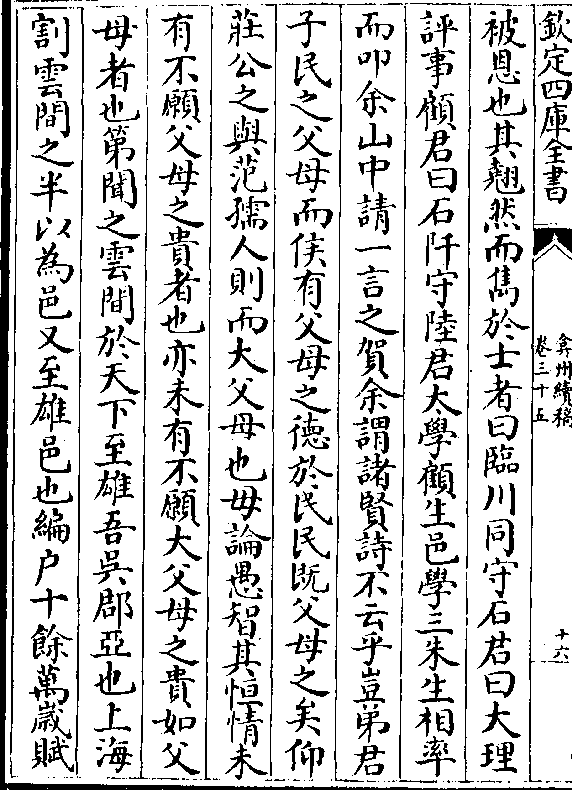 欽定四庫全書
弇州續稿
卷三十五
十六
被恩也其翹然而雋於士者曰臨川同守石君曰大理
評事顧君曰石阡守陸君太學顧生邑學三朱生相率
而叩余山中請一言之賀余謂諸賢詩不云乎豈弟君
子民之父母而侯有父母之德於民民既父母之矣仰
莊公之與范孺人則而大父母也毋論愚智其恒情未
有不願父母之貴者也亦未有不願大父母之貴如父
母者也第聞之雲間於天下至雄吾吳郡亞也上海
割雲間之半以為邑又至雄邑也編户十餘萬歲賦